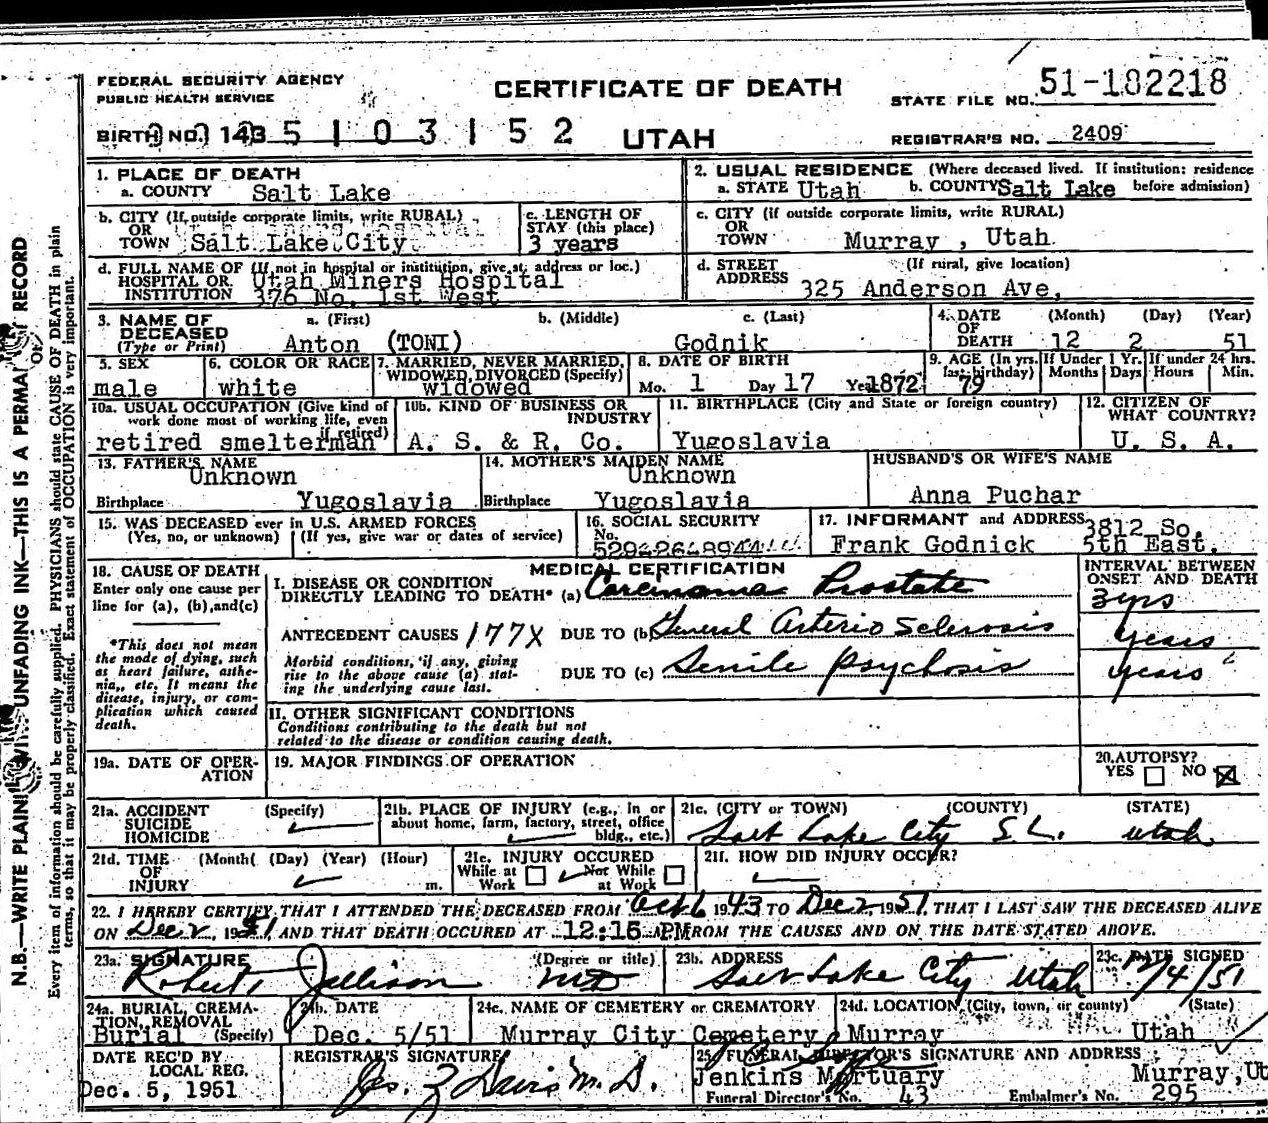 FEDERAL SECURITY AGENCY
PUBLIC HEALTH SERVICE
CERTIFICATE OF DEATH
STATE FILE NO. 51-182218
BIRTH NO. 143 5103152
UTAH
REGISTRAR'S NO. 2409
1. PLACE OF DEATH
a. COUNTY Salt Lake
2. USUAL RESIDENCE (Where deceased lived. If institution: residence before admission)
a. STATE Utah b. COUNTY Salt Lake
b. CITY (If outside corporate limits, write RURAL)
OR TOWN Salt Lake City
c. LENGTH OF STAY (this place)
3 years
c. CITY (if outside corporate limits, write RURAL)
OR TOWN Murray, Utah
d. FULL NAME OF (If not in hospital or institution, give st. address or loc.)
HOSPITAL OR INSTITUTION Utah Miners Hospital
376 No. 1st West
d. STREET ADDRESS (If rural, give location)
325 Anderson Ave,
3. NAME OF DECEASED (Type or Print)
a. (First) b. (Middle) c. (Last)
Anton (TONI) Godnik
4. DATE OF DEATH (Month) (Day) (Year)
12 2 51
5. SEX
male
6. COLOR OR RACE
white
7. MARRIED, NEVER MARRIED, WIDOWED, DIVORCED (Specify)
widowed
8. DATE OF BIRTH
Mo. 1 Day 17 Year 1872
9. AGE (In yrs. last birthday) 79
If Under 1 Yr. Months Days
If under 24 hrs. Hours Min.
10a. USUAL OCCUPATION (Give kind of work done most of working life, even if retired)
retired smelterman
10b. KIND OF BUSINESS OR INDUSTRY
A. S. & R. Co.
11. BIRTHPLACE (City and State or foreign country)
Yugoslavia
12. CITIZEN OF WHAT COUNTRY?
U. S. A.
13. FATHER'S NAME
Unknown
Birthplace Yugoslavia
14. MOTHER'S MAIDEN NAME
Unknown
Birthplace Yugoslavia
HUSBAND'S OR WIFE'S NAME
Anna Puchar
15. WAS DECEASED ever in U.S. ARMED FORCES
(Yes, no, or unknown) (If yes, give war or dates of service)
16. SOCIAL SECURITY No.
17. INFORMANT and ADDRESS 3812 So.
Frank Godnick 5th East.
18. CAUSE OF DEATH
Enter only one cause per line for (a), (b), and (c)
MEDICAL CERTIFICATION
INTERVAL BETWEEN ONSET AND DEATH
I. DISEASE OR CONDITION DIRECTLY LEADING TO DEATH* (a) Carcinoma Prostate 3 yrs
ANTECEDENT CAUSES 177X DUE TO (b) General Arterio Sclerosis years
DUE TO (c) Senile Psychosis years
Morbid conditions, if any, giving rise to the above cause (a) stating the underlying cause last.
*This does not mean the mode of dying, such as heart failure, asthenia, etc. It means the disease, injury, or complication which caused death.
II. OTHER SIGNIFICANT CONDITIONS
Conditions contributing to the death but not related to the disease or condition causing death.
19a. DATE OF OPERATION
19. MAJOR FINDINGS OF OPERATION
20. AUTOPSY?
YES NO
21a. ACCIDENT SUICIDE HOMICIDE (Specify)
21b. PLACE OF INJURY (e.g., in or about home, farm, factory, street, office bldg., etc.)
21c. (CITY or TOWN) (COUNTY) (STATE)
Salt Lake City S. L. Utah
21d. TIME OF INJURY (Month) (Day) (Year) (Hour) m.
21e. INJURY OCCURED
While at Work Not While at Work
21f. HOW DID INJURY OCCUR?
22. I HEREBY CERTIFY THAT I ATTENDED THE DECEASED FROM Oct 6 1943 TO Dec 2, 1951, THAT I LAST SAW THE DECEASED ALIVE
ON Dec 2, 1951, AND THAT DEATH OCCURED AT 12:16 PM FROM THE CAUSES AND ON THE DATE STATED ABOVE.
23a. SIGNATURE (Degree or title)
Robert Jellison MD
23b. ADDRESS
Salt Lake City Utah
23c. DATE SIGNED
12/4/51
24a. BURIAL, CREMATION, REMOVAL (Specify)
Burial
24b. DATE
Dec. 5/51
24c. NAME OF CEMETERY or CREMATORY
Murray City Cemetery
24d. LOCATION (City, town, or county) (State)
Murray Utah
DATE REC'D BY LOCAL REG.
Dec. 5, 1951
REGISTRAR'S SIGNATURE
Jos. Z Davis M. D.
25. FUNERAL DIRECTOR'S SIGNATURE AND ADDRESS
Jenkins Mortuary Murray, Ut
Funeral Director's No. 43 Embalmer's No. 295
N.B.—WRITE PLAINLY WITH UNFADING INK—THIS IS A PERMANENT RECORD
Every item of information should be carefully supplied. PHYSICIANS should state CAUSE OF DEATH in plain
terms, so that it may be properly classified. Exact statement of OCCUPATION is very important.